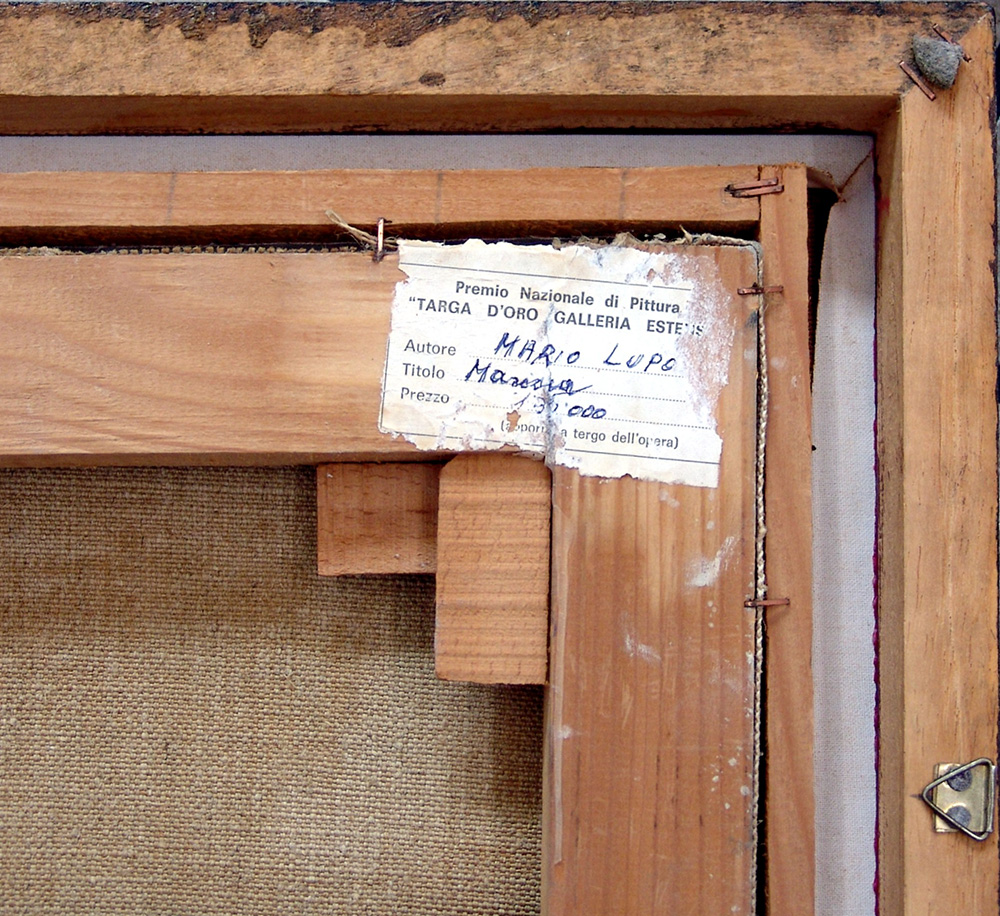 Premio Nazionale di Pittura
"TARGA D'ORO GALLERIA ESTENS
Autore MARIO LUPO
Titolo
Prezzo
a tergo dell'opera)